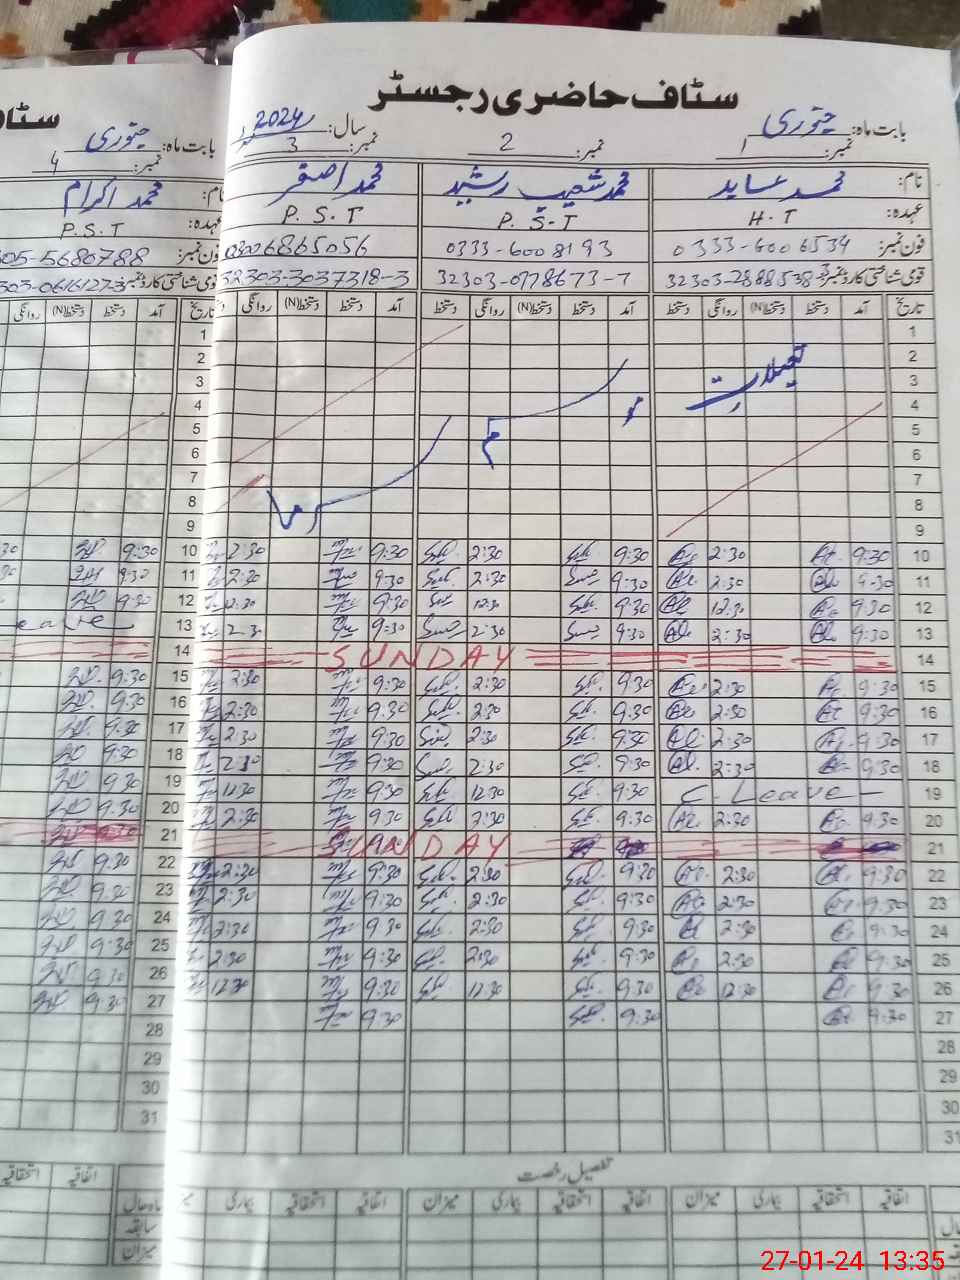 سٹاف حاضری رجسٹر
بابت ماہ: جنوری سال: 2024
نمبر: 1 نمبر: 2 نمبر: 3
نام: محمد عابد محمد شعیب رشید محمد اصغر
عہدہ: H.T P.S.T P.S.T
فون نمبر: 0333-6006534 0333-6008193
قومی شناختی کارڈ نمبر: 32303-0778673-7 32303-3037318-3
تاریخ آمد دستخط دستخط(N) روانگی دستخط آمد دستخط دستخط(N) روانگی دستخط آمد دستخط دستخط(N) روانگی
1
2 تعطیلات
3
4 موسم
5
6
7
8 سرما
9
10 9:30 2:30 9:30 2:30 9:30 2:30
11 9:30 2:30 9:30 2:30 9:30 2:30
12 9:30 12:30 9:30 12:30 9:30 12:30
13 9:30 2:30 9:30 2:30 9:30 2:30
14 SUNDAY
15 9:30 2:30 9:30 2:30 9:30 2:30
16 9:30 2:30 9:30 2:30 9:30 2:30
17 9:30 2:30 9:30 2:30 9:30 2:30
18 9:30 2:30 9:30 2:30 9:30 2:30
19 C-Leave 9:30 12:30 9:30 12:30
20 9:30 2:30 9:30 2:30 9:30 2:30
21 SUNDAY
22 9:30 2:30 9:30 2:30 9:30 2:30
23 9:30 2:30 9:30 2:30 9:30 2:30
24 9:30 2:30 9:30 2:30 9:30 2:30
25 9:30 2:30 9:30 2:30 9:30 2:30
26 9:30 12:30 9:30 12:30 9:30 12:30
27 9:30 9:30 9:30
28
29
30
31
تفصیل رخصت
اتفاقیہ استحقاقیہ بیماری میزان اتفاقیہ استحقاقیہ بیماری میزان اتفاقیہ استحقاقیہ بیماری
بابت ماہ: جنوری
نمبر: 4
نام: محمد اکرام
عہدہ: P.S.T
فون نمبر: 305-5680788
قومی شناختی کارڈ نمبر:
تاریخ آمد دستخط دستخط(N) روانگی
1
2
3
4
5
6
7
8
9
10 9:30
11 9:30
12 9:30
13 eave
14
15 9:30
16 9:30
17 9:30
18 9:30
19 9:30
20 9:30
21 9:30
22 9:30
23 9:30
24 9:30
25 9:30
26 9:30
27 9:30
28
29
30
31
اتفاقیہ استحقاقیہ
ماہ حال
سابقہ
میزان
27-01-24 13:35